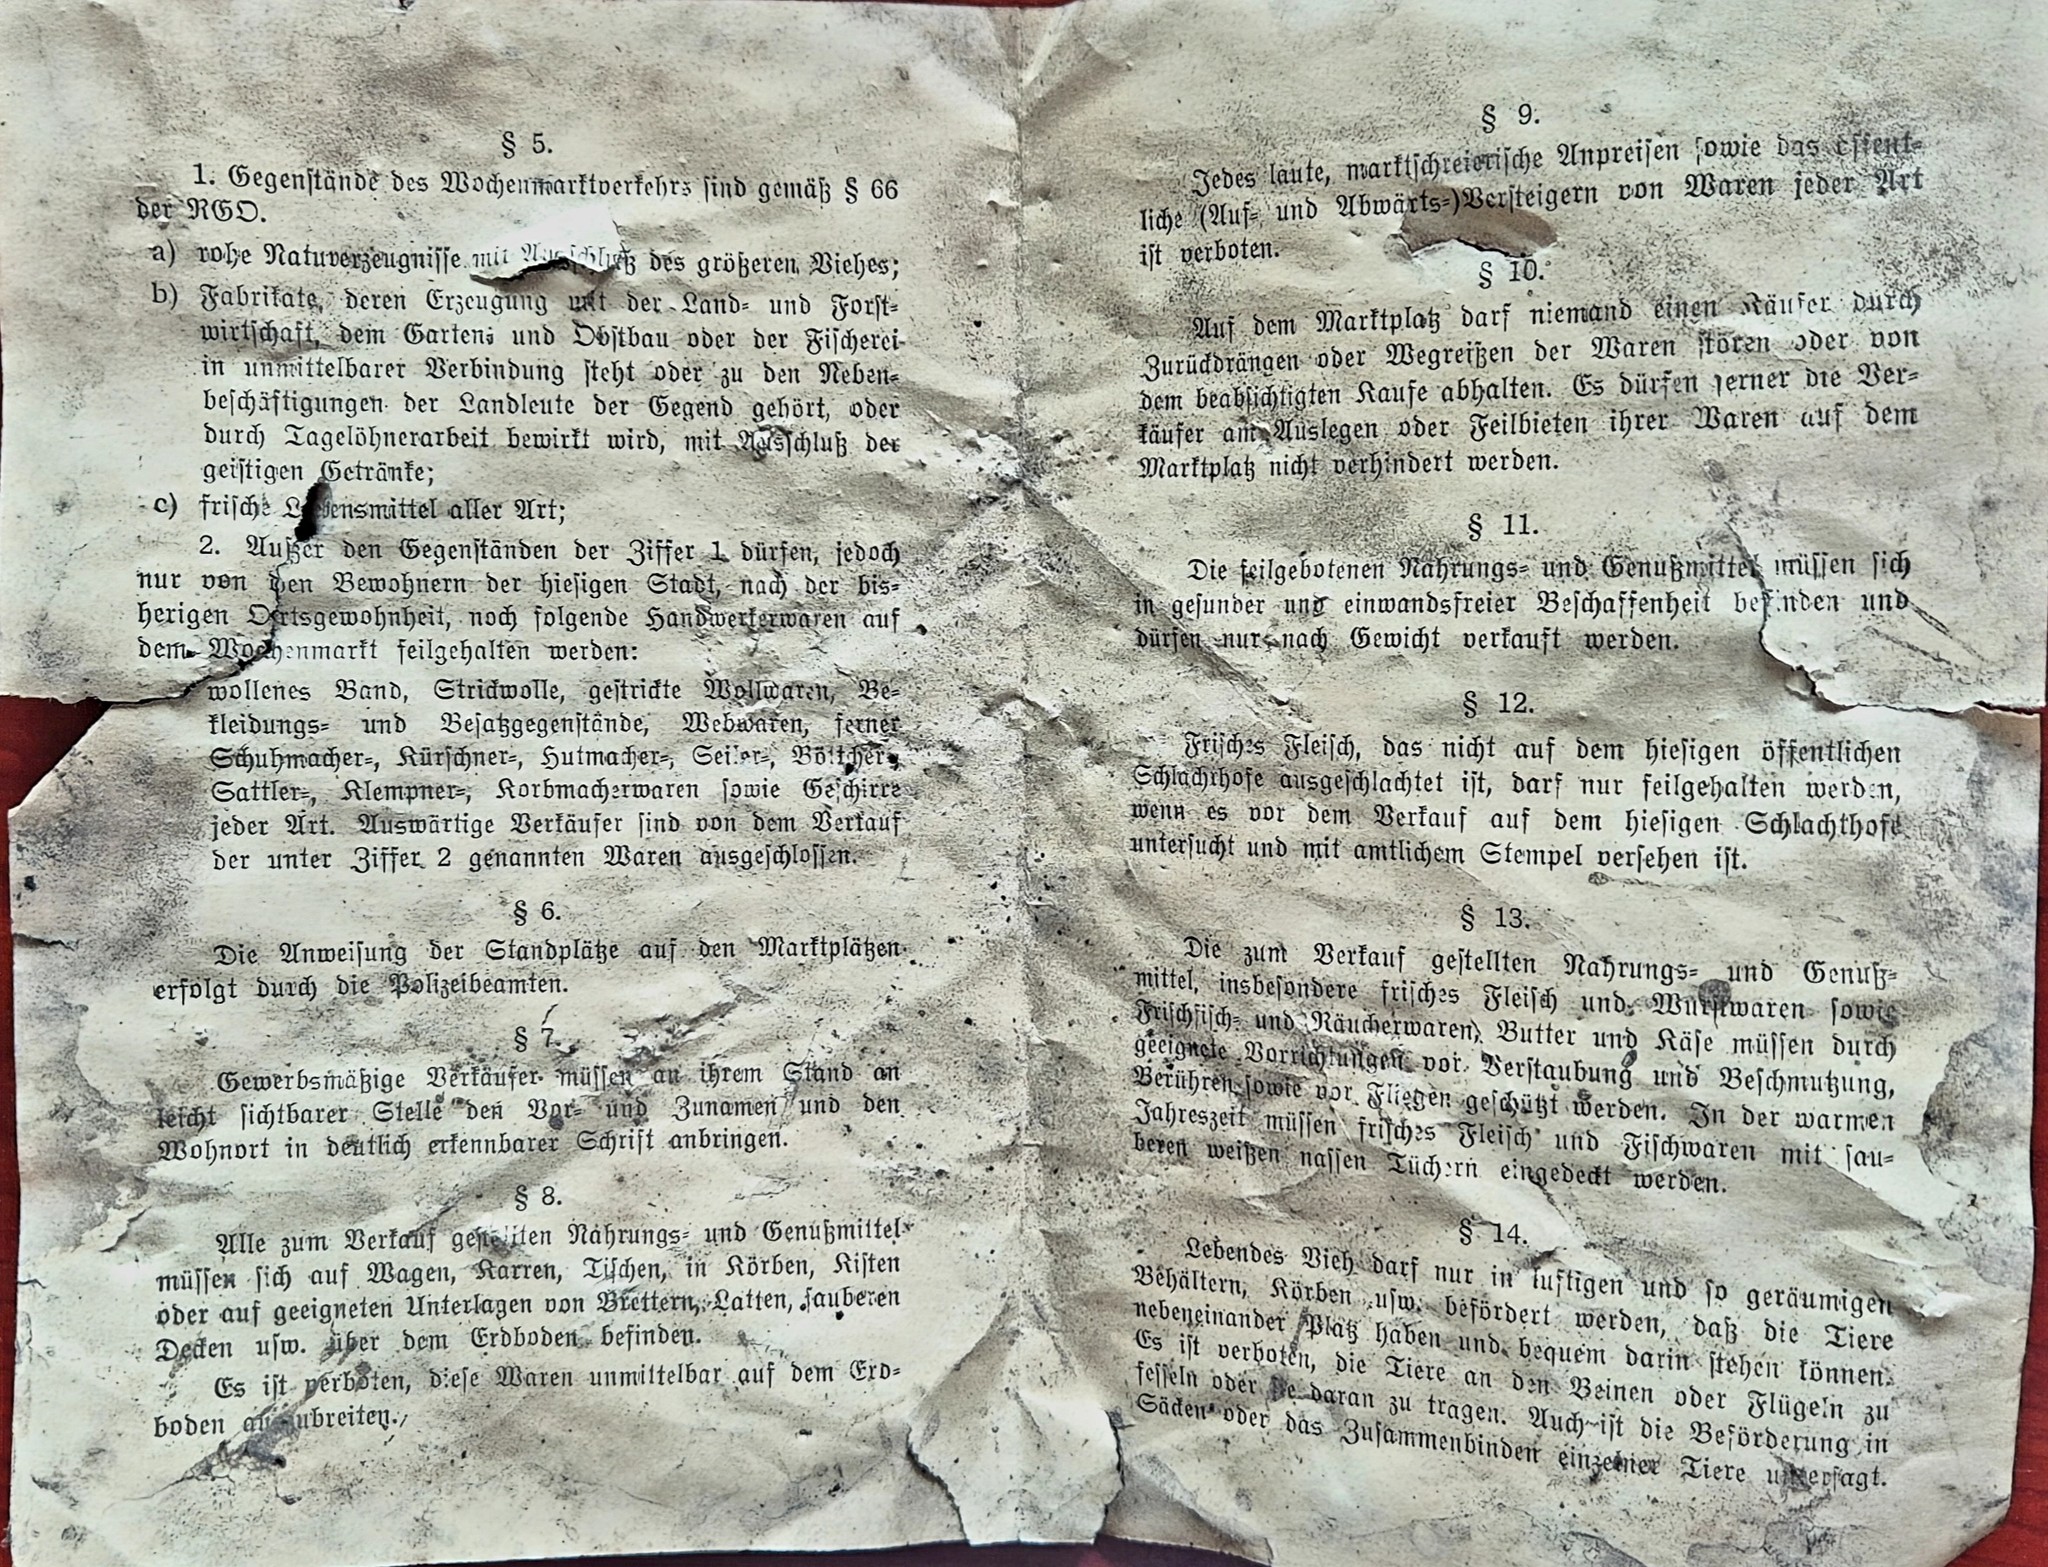 § 5.
1. Gegenstände des Wochenmarktverkehrs sind gemäß § 66
der RGO.
a) rohe Naturerzeugnisse mit Ausschluß des größeren Viehes;
b) Fabrikate, deren Erzeugung mit der Land- und Forst-
wirtschaft, dem Garten- und Obstbau oder der Fischerei
in unmittelbarer Verbindung steht oder zu den Neben-
beschäftigungen der Landleute der Gegend gehört, oder
durch Tagelöhnerarbeit bewirkt wird, mit Ausschluß der
geistigen Getränke;
c) frische Lebensmittel aller Art;
2. Außer den Gegenständen der Ziffer 1 dürfen, jedoch
nur von den Bewohnern der hiesigen Stadt, nach der bis-
herigen Ortsgewohnheit, noch folgende Handwerkerwaren auf
dem Wochenmarkt feilgehalten werden:
wollenes Band, Strickwolle, gestrickte Wollwaren, Be-
kleidungs- und Besatzgegenstände, Webwaren, ferner
Schuhmacher-, Kürschner-, Hutmacher-, Seiler-, Böttcher-,
Sattler-, Klempner-, Korbmacherwaren sowie Geschirre
jeder Art. Auswärtige Verkäufer sind von dem Verkauf
der unter Ziffer 2 genannten Waren ausgeschlossen.
§ 6.
Die Anweisung der Standplätze auf den Marktplätzen
erfolgt durch die Polizeibeamten.
§ 7.
Gewerbsmäßige Verkäufer müssen an ihrem Stand an
leicht sichtbarer Stelle den Vor- und Zunamen und den
Wohnort in deutlich erkennbarer Schrift anbringen.
§ 8.
Alle zum Verkauf gestellten Nahrungs- und Genußmittel
müssen sich auf Wagen, Karren, Tischen, in Körben, Kisten
oder auf geeigneten Unterlagen von Brettern, Latten, sauberen
Decken usw. über dem Erdboden befinden.
Es ist verboten, diese Waren unmittelbar auf dem Erd-
boden auszubreiten.
§ 9.
Jedes laute, marktschreierische Anpreisen sowie das öffent-
liche (Auf- und Abwärts-)Versteigern von Waren jeder Art
ist verboten.
§ 10.
Auf dem Marktplatz darf niemand einen Käufer durch
Zurückdrängen oder Wegreißen der Waren stören oder von
dem beabsichtigten Kaufe abhalten. Es dürfen ferner die Ver-
käufer am Auslegen oder Feilbieten ihrer Waren auf dem
Marktplatz nicht verhindert werden.
§ 11.
Die feilgebotenen Nahrungs- und Genußmittel müssen sich
in gesunder und einwandsfreier Beschaffenheit befinden und
dürfen nur nach Gewicht verkauft werden.
§ 12.
Frisches Fleisch, das nicht auf dem hiesigen öffentlichen
Schlachthofe ausgeschlachtet ist, darf nur feilgehalten werden,
wenn es vor dem Verkauf auf dem hiesigen Schlachthofe
untersucht und mit amtlichem Stempel versehen ist.
§ 13.
Die zum Verkauf gestellten Nahrungs- und Genuß-
mittel, insbesondere frisches Fleisch und Wurstwaren sowie
Frischfisch- und Räucherwaren, Butter und Käse müssen durch
geeignete Vorrichtungen vor Verstaubung und Beschmutzung,
Berühren sowie vor Fliegen geschützt werden. In der warmen
Jahreszeit müssen frisches Fleisch und Fischwaren mit sau-
beren weißen nassen Tüchern eingedeckt werden.
§ 14.
Lebendes Vieh darf nur in luftigen und so geräumigen
Behältern, Körben usw. befördert werden, daß die Tiere
nebeneinander Platz haben und bequem darin stehen können.
Es ist verboten, die Tiere an den Beinen oder Flügeln zu
fesseln oder sie daran zu tragen. Auch ist die Beförderung in
Säcken oder das Zusammenbinden einzelner Tiere untersagt.